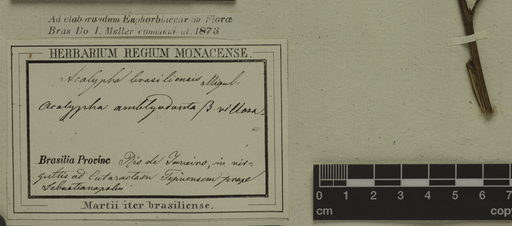 Ad elaborandum Euphorbiaceae in Flora
Bras Do I. Müller communi ut. 1873
HERBARIUM REGIUM MONACENSE.
Acalypha brasiliensis
Acalypha amblyodonta β villosa.
Brasilia Provinc Rio de Janeiro, in vir-
gultis ad Cataractam Tijucensem prope
Sebastianopolin
Martii iter brasiliense.
0 1 2 3 4 5 6 7
cm copy